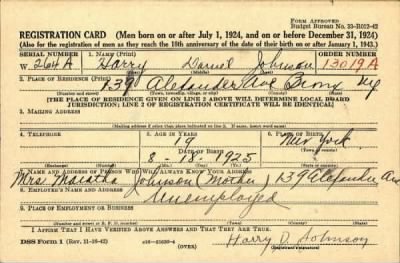 FORM APPROVED
Budget Bureau No. 33-R012-42
REGISTRATION CARD (Men born on or after July 1, 1924, and on or before December 31, 1924)
(Also for the registration of men as they reach the 18th anniversary of the date of their birth on or after January 1, 1943.)
SERIAL NUMBER 1. NAME (Print) ORDER NUMBER
W 264 A Harry Daniel Johnson 13019 A
(First) (Middle) (Last)
2. PLACE OF RESIDENCE (Print)
139 Alexander Ave Bronx NY
(Number and street) (Town, township, village, or city) (County) (State)
[THE PLACE OF RESIDENCE GIVEN ON LINE 2 ABOVE WILL DETERMINE LOCAL BOARD
JURISDICTION; LINE 2 OF REGISTRATION CERTIFICATE WILL BE IDENTICAL]
3. MAILING ADDRESS
[Mailing address if other than place indicated on line 2. If same, insert word same]
4. TELEPHONE 5. AGE IN YEARS 6. PLACE OF BIRTH
19 New York
DATE OF BIRTH (Town or county)
8 - 18 - 1925
(Exchange) (Number) (Mo.) (Day) (Yr.) (State or country)
7. NAME AND ADDRESS OF PERSON WHO WILL ALWAYS KNOW YOUR ADDRESS
Mrs Johnson (Mother) 139 Alexander Ave
8. EMPLOYER'S NAME AND ADDRESS
Unemployed
9. PLACE OF EMPLOYMENT OR BUSINESS
(Number and street or R. F. D. number) (Town) (County) (State)
I AFFIRM THAT I HAVE VERIFIED ABOVE ANSWERS AND THAT THEY ARE TRUE.
DSS Form 1 (Rev. 11-16-42) (OVER) Harry D. Johnson
(Registrant's signature)